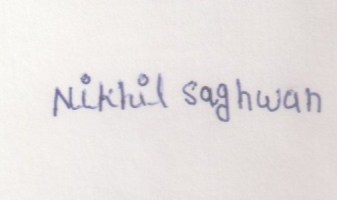 Nikhil Saghwan